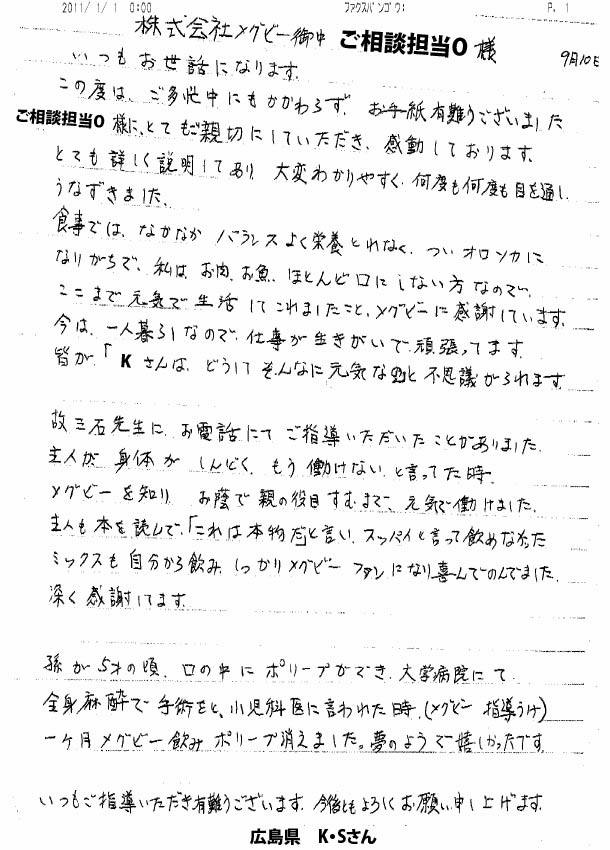 2011/ 1/ 1  0:00 ファクスバンゴウ: P. 1
株式会社メグビー御中 ご相談担当O 様 9月10日
いつもお世話になります。
この度は、ご多忙中にもかかわらず、お手紙有難うございました
ご相談担当O 様に、とてもご親切にしていただき、感動しております。
とても詳しく説明してあり 大変わかりやすく、何度も何度も目を通し、
うなずきました。
食事では、なかなか バランスよく栄養とれなく、ついオロソカに
なりがちで、私は、お肉、お魚、ほとんど口にしない方なので、
ここまで元気で生活してこれましたこと、メグビーに感謝しています。
今は、一人暮らしなので、仕事が生きがいで頑張ってます
皆が、「 K さんは、どうしてそんなに元気なのと不思議がられます。
故三石先生に、お電話にてご指導いただいたことがありました。
主人が、身体が しんどく、もう働けないと言ってた時、
メグビーを知り お蔭で親の役目すむまで、元気で働けました。
主人も本を読んで、「これは本物だと言い、スッパイと言って飲めなかった
ミックスも自分から飲み、しっかりメグビーファンになり喜んでのんでました。
深く感謝してます。
孫が5才の頃、口の中にポリープができ、大学病院にて
全身麻酔で手術をと、小児科医に言われた時、(メグビー 指導うけ)
一ヶ月メグビー飲みポリープ消えました。夢のようで嬉しかったです。
いつもご指導いただき有難うございます。今後ともよろしくお願い申し上げます。
広島県 K・Sさん